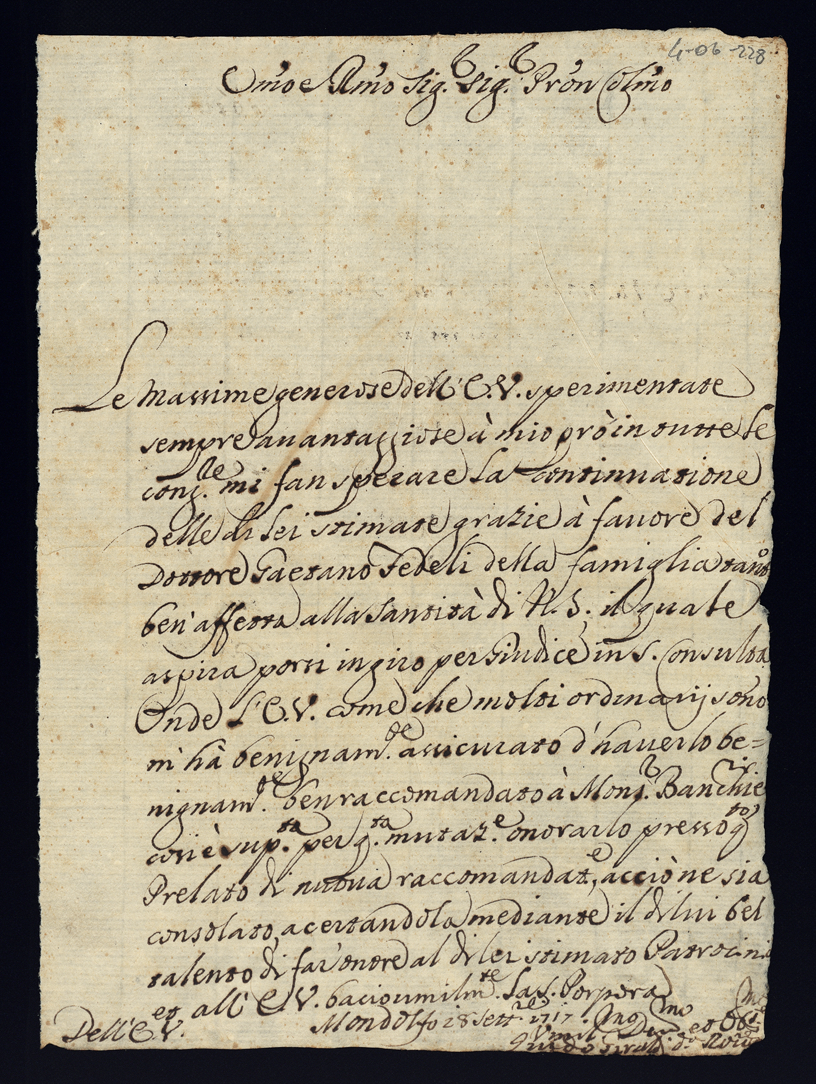 4-06-228
Emo e Rmo Sig.r Sig.r Pron Colmo
Le Massime generose dell' E.V. sperimentate
sempre auantaggiose à mio prò in tutte le
cong.re mi fan sperare la continuatione
delle di lei stimate grazie à fauore del
Dottore Gaetano Fedeli della famiglia tanto
ben' affetta alla Santità di N. S. il quale
aspira porsi in giro per Giudice in S. Consulta
Onde l'E.V. come che molti ordinarij sono
m' hà benignam.te assicurato d'hauerlo be=
nignam.te ben raccomandato à Mons.r Banchieri
così è sup.ta per q.ta mutaz.e onorarlo presso q.to
Prelato di nuova raccomandat.e, acciò ne sia
consolato, acertandola mediante il di lui bel
talento di far' onore al di lei stimato Patrocinio
et all' E.V. bacio umilm.te la S. Porpora
Dell' E.V. Mondolfo 18 Sett.re 1717.
Vmil.mo Deu.mo et Obl.mo